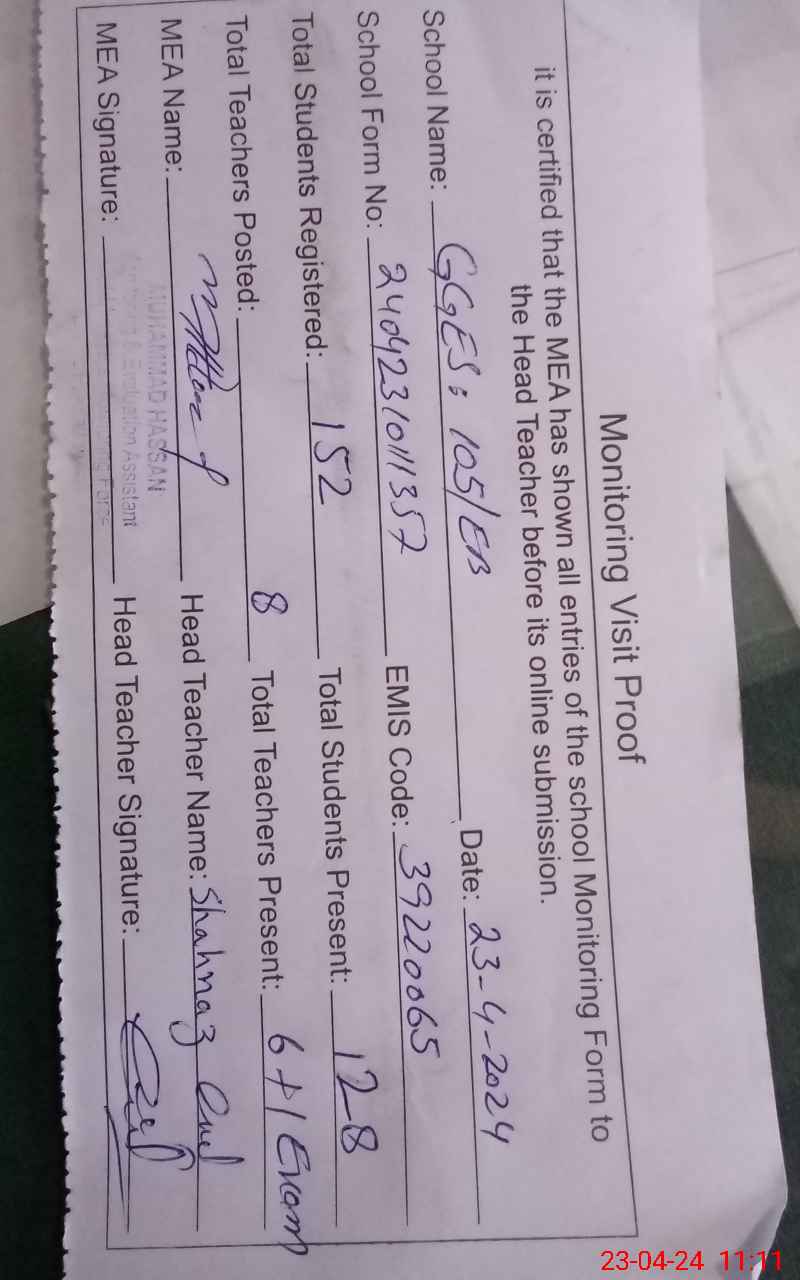 Monitoring Visit Proof
it is certified that the MEA has shown all entries of the school Monitoring Form to
the Head Teacher before its online submission.
School Name: GGES: 105/EB Date: 23-4-2024
School Form No: 24042310111357 EMIS Code: 39220065
Total Students Registered: 152 Total Students Present: 128
Total Teachers Posted: 8 Total Teachers Present: 6+1 Exam
MEA Name: Head Teacher Name: Shahnaz
MUHAMMAD HASSAN
& Evaluation Assistant
MEA Signature: Head Teacher Signature:
23-04-24 11:11